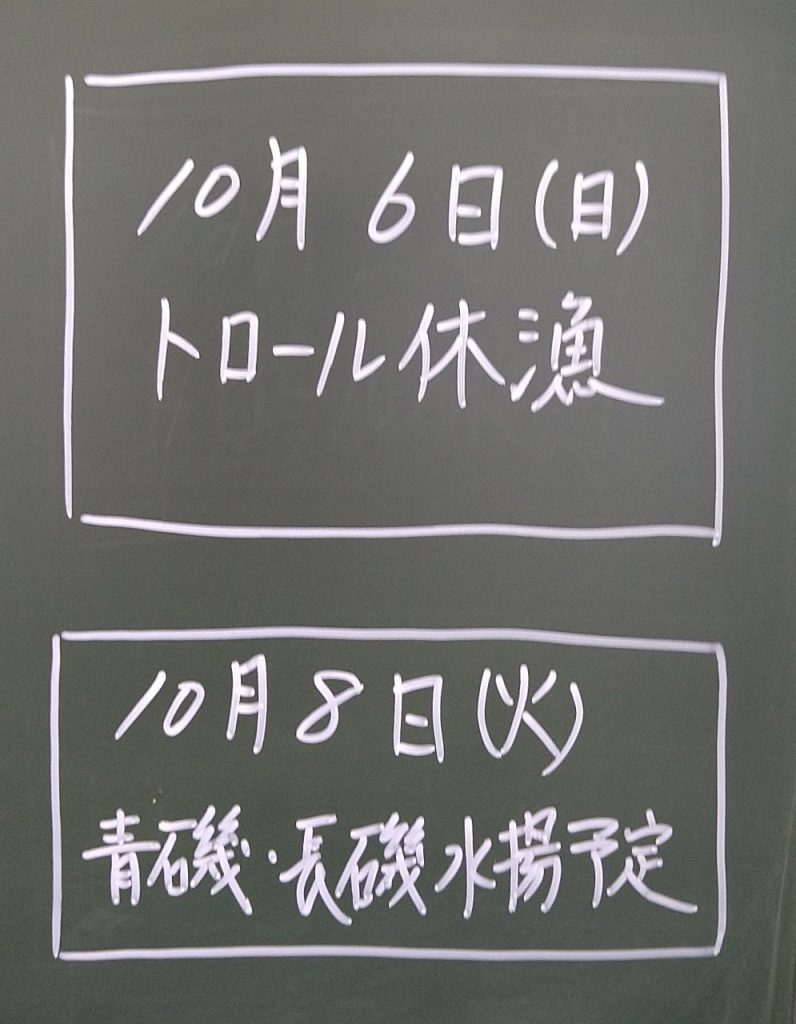 10月6日(日)
トロール休漁
10月8日(火)
青磯・長磯水揚予定